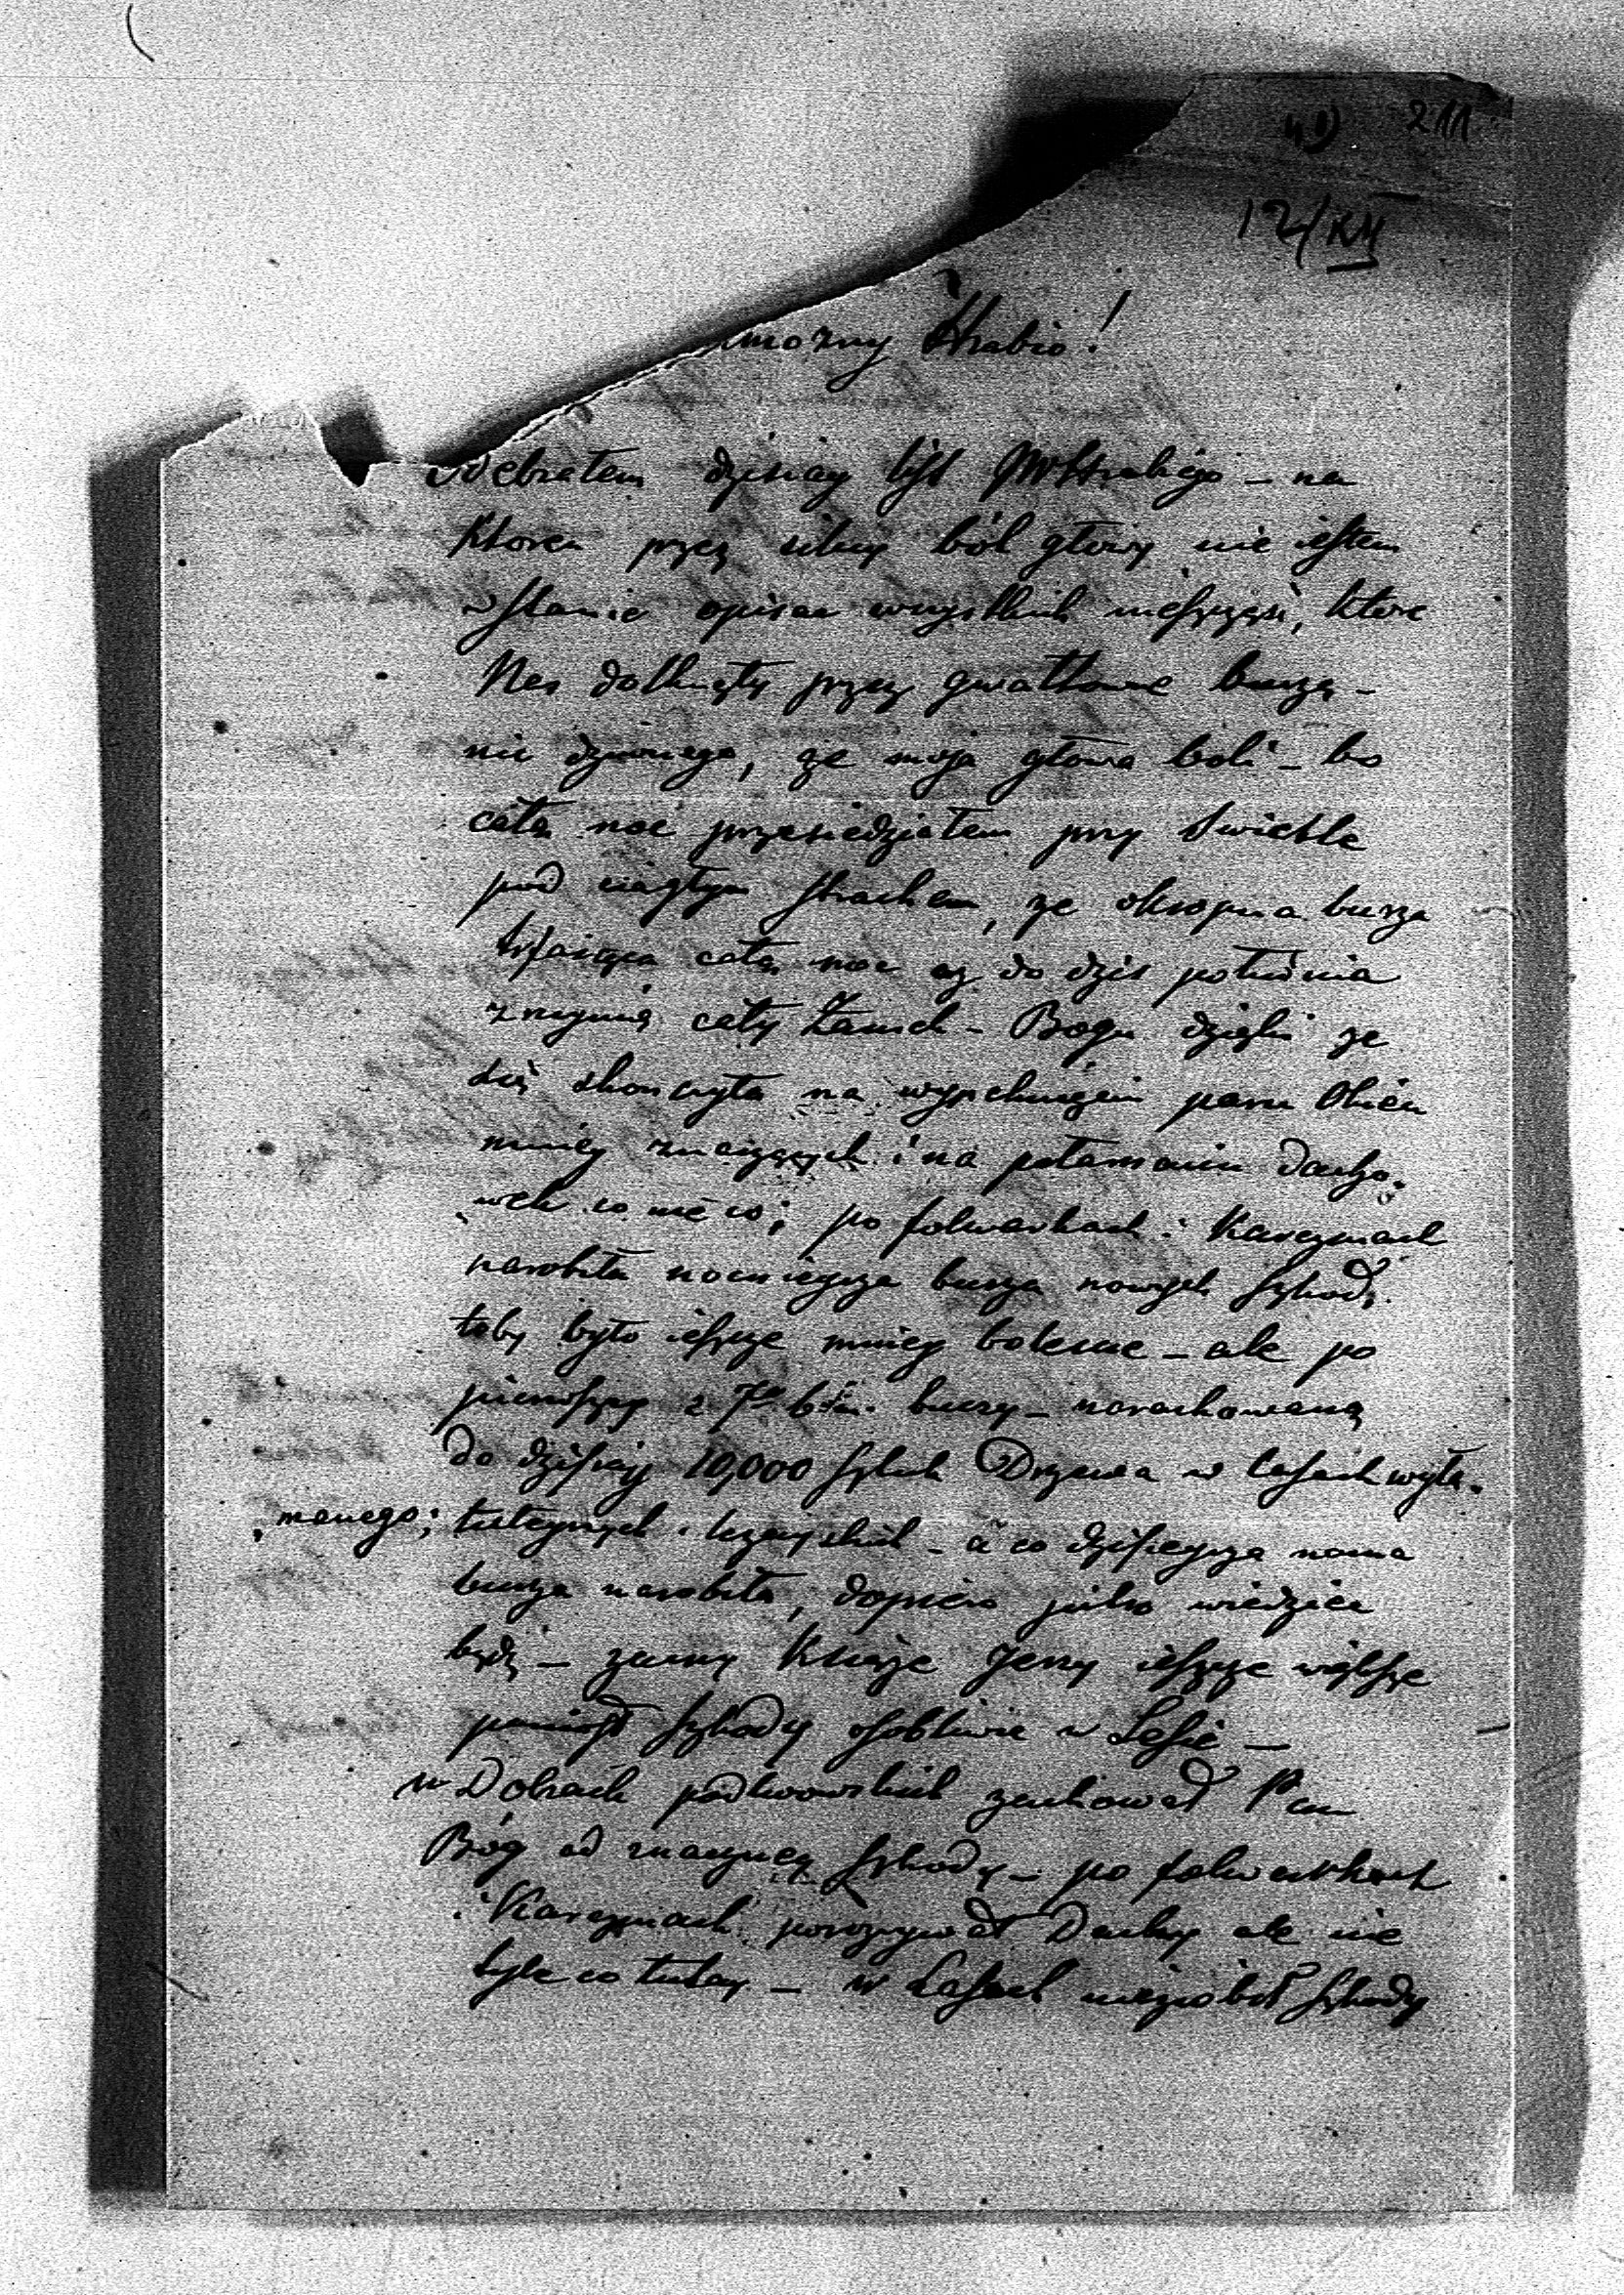 211
12/XII
możny Hrabio!
Odebrałem dzisiay list JWHrabiego – na
ktoren przez silny ból głowy nie iestem
w stanie opisac wszystkich nieszczęść, ktore
Nas dotknęły przez gwałtowne burze –
nic dziwnego, ze moja głowa boli – bo
całą noc przesiedziałem przy swietle
pod ciągłym strachem, ze okropna burza
trwaiąca całą noc az do dzis południa
zrujnuię cały Zamek – Bogu dzięki ze
się skonczyło na wypchnięciu paru Okien
mniey znaczących i na połamaniu dacho„
„wek co nie co; po folwarkach i Karczmach
narobiła nocnieysza burza nowych szkod,
toby było ieszcze mniey bolesne – ale po
pierwszey z 7go b: m. burzy – narachowano
do dzisiay 10,000 sztuk Drzewa w lasach wyła„
„manego; tuteyszych i – a co dzisieysza nowa
burza narobiła, dopiero jutro wiedzieć
będę – zacny Książe Jerzy ieszcze większe
poniosł szkody osobliwie w Lesie –
w Dobrach podlwowskich zachował Pan
Bóg od znaczney szkody – po folwarkach
i Karczmach Dachy ale nie
tyle co tutay – w Lasach niezrobił szkody